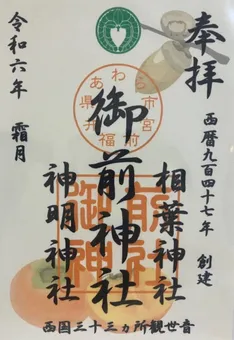 奉拝
西暦九百四十七年 創建
相葉神社
御前神社
神明神社
令和六年 霜月
西国三十三ヵ所観世音